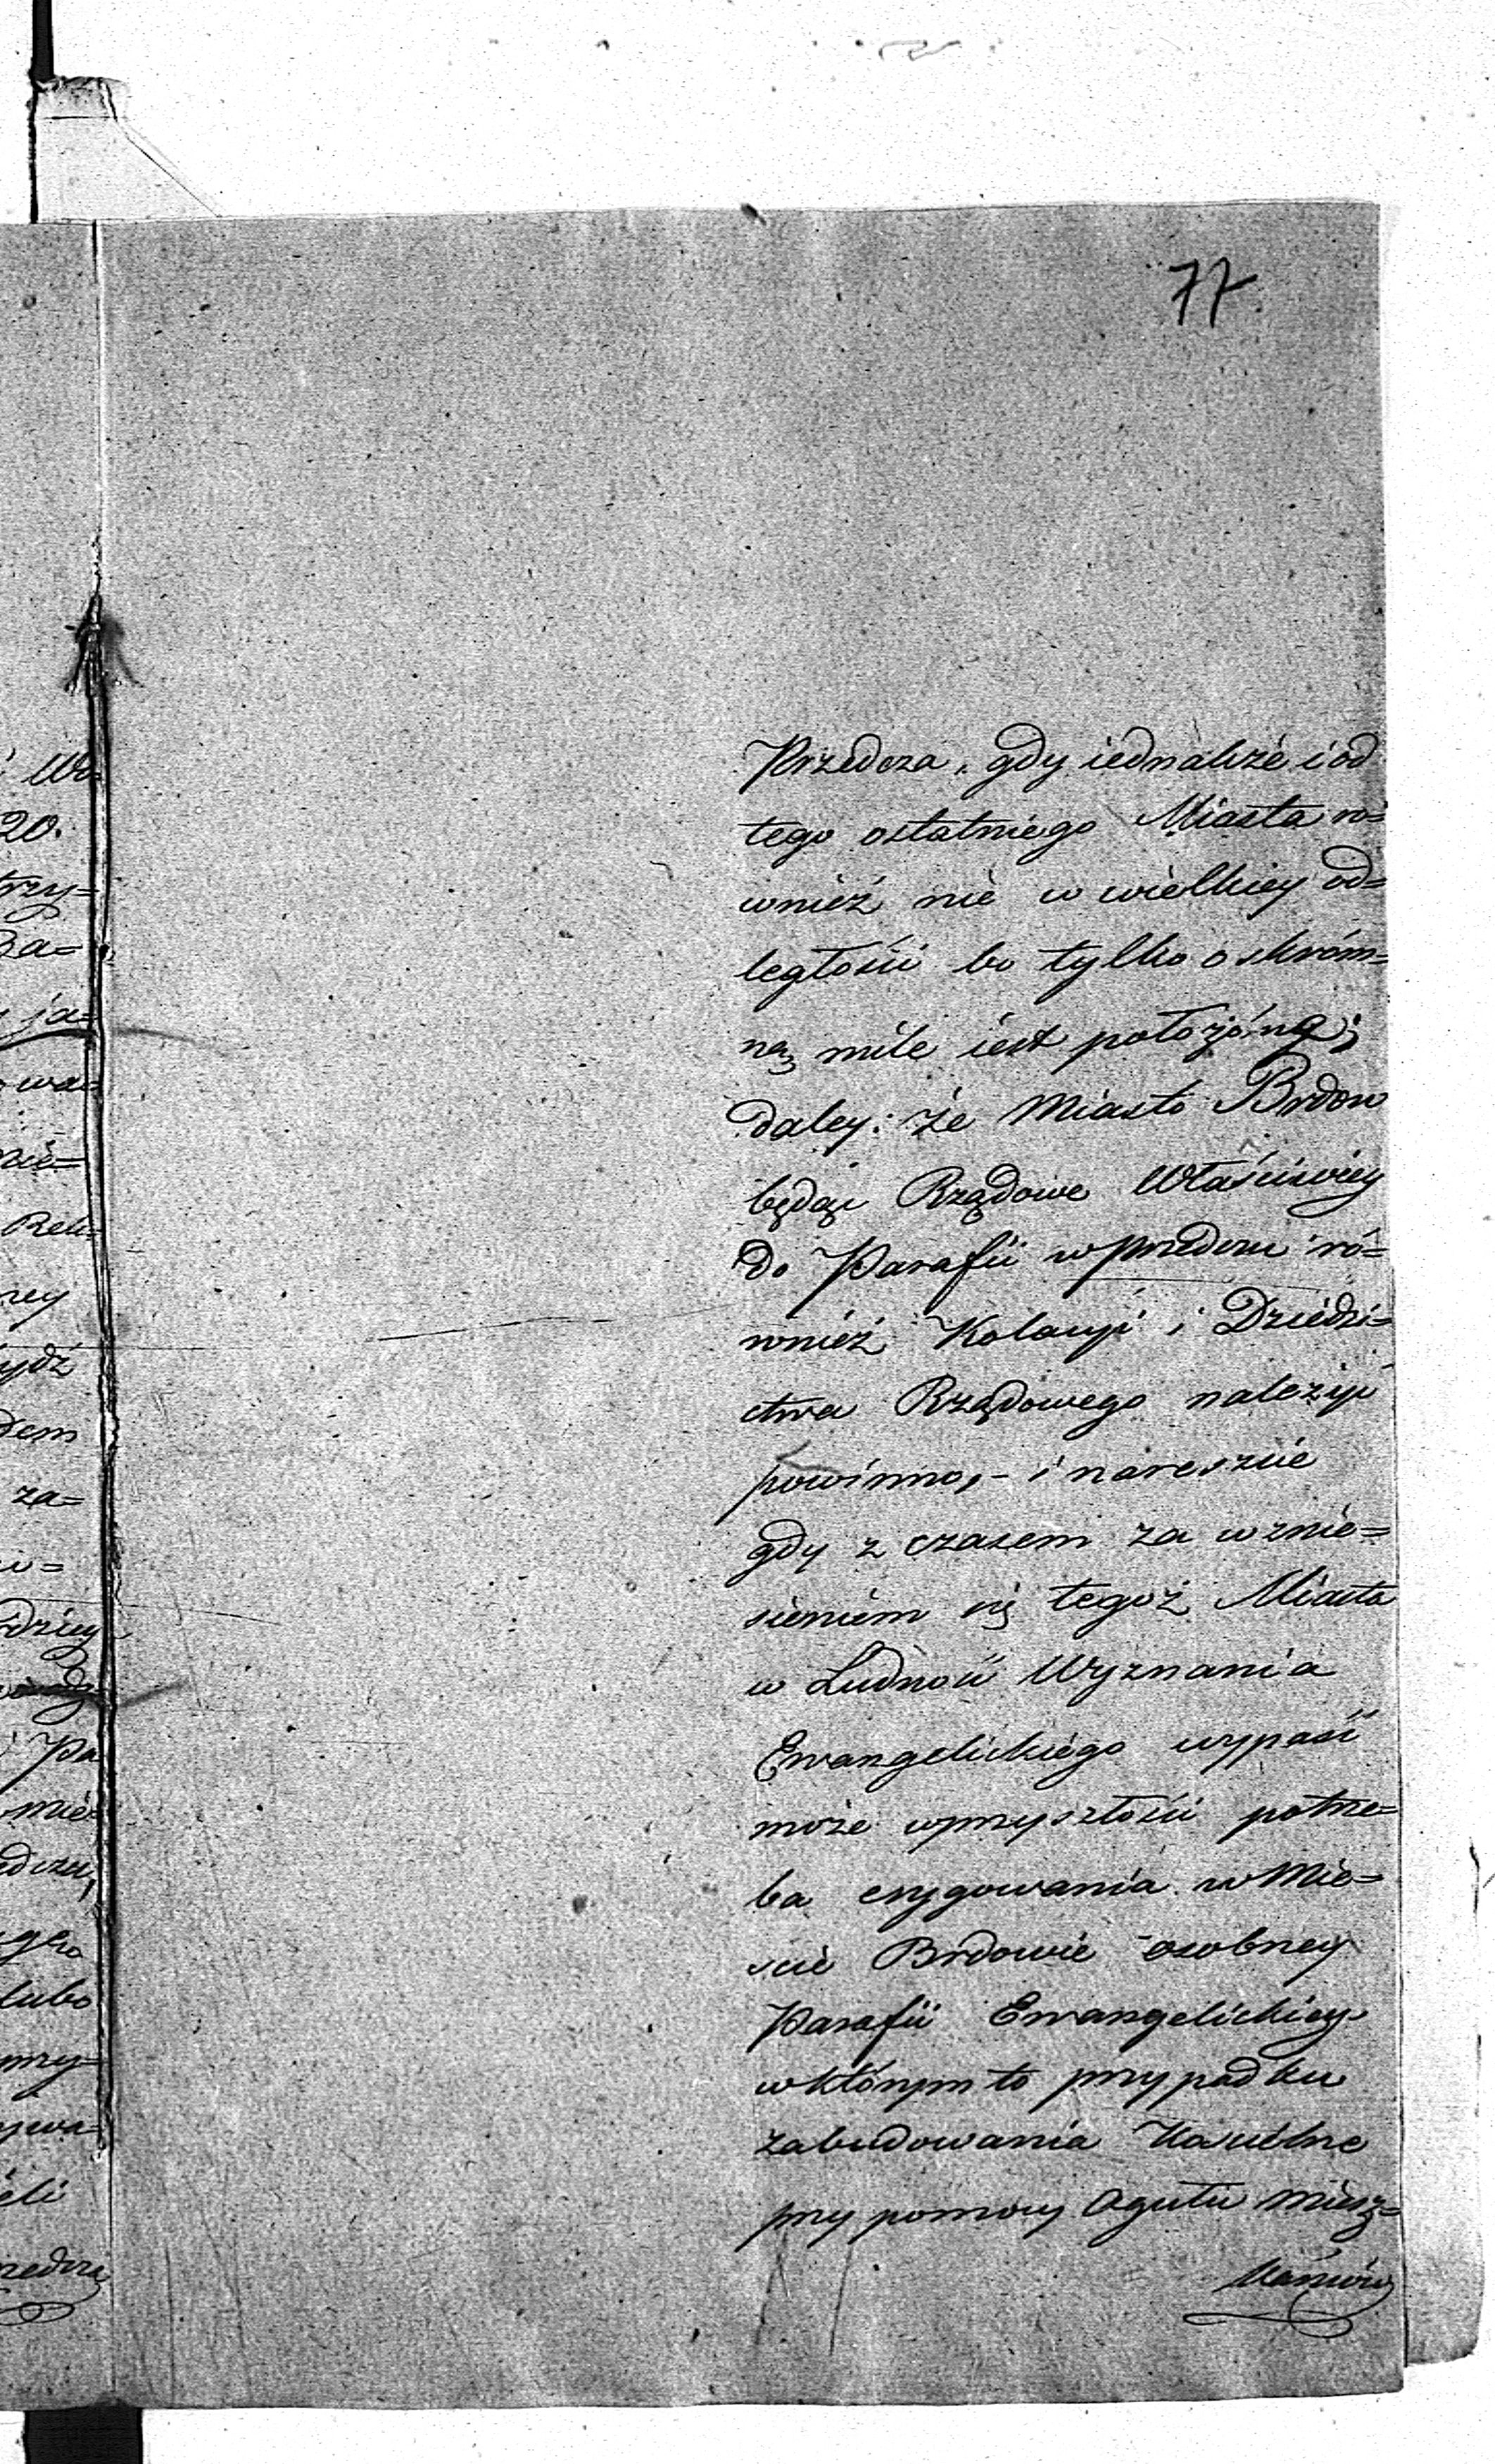 77
Przedcza, gdy iednakże i od
tego ostatniego Miasta ró=
wnież nie w wielkiey od=
ległości bo tylko o skróm=
ną mile iest położóną;
daley: że Miasto Brdow
będąc Rządowe Właściwiey
do Parafii w Przedczu ró=
wnież Kolacyi i Dziedzi=
ctwa Rządowego należyć
powinno, - i nareszcie
gdy z czasem za wznie=
sieniem się tegoż Miasta
w Ludność Wyznania
Ewangelickiego wypaść
może w przyszłości potrze=
ba erygowania w Mie=
ście Brdowie osobney
Parafii Ewangelickiey
w którym to przypadku
zabudowania Kościelne
przy pomocy Ogułu miesz=
kańców
Wo=
20.
trzy=
Za=
ja=
wa=
nie=
Reli=
rey
dem
za=
dziey
Pa
mie=
edczu,
lubo
przy=
ywa=
eli
rzedcza